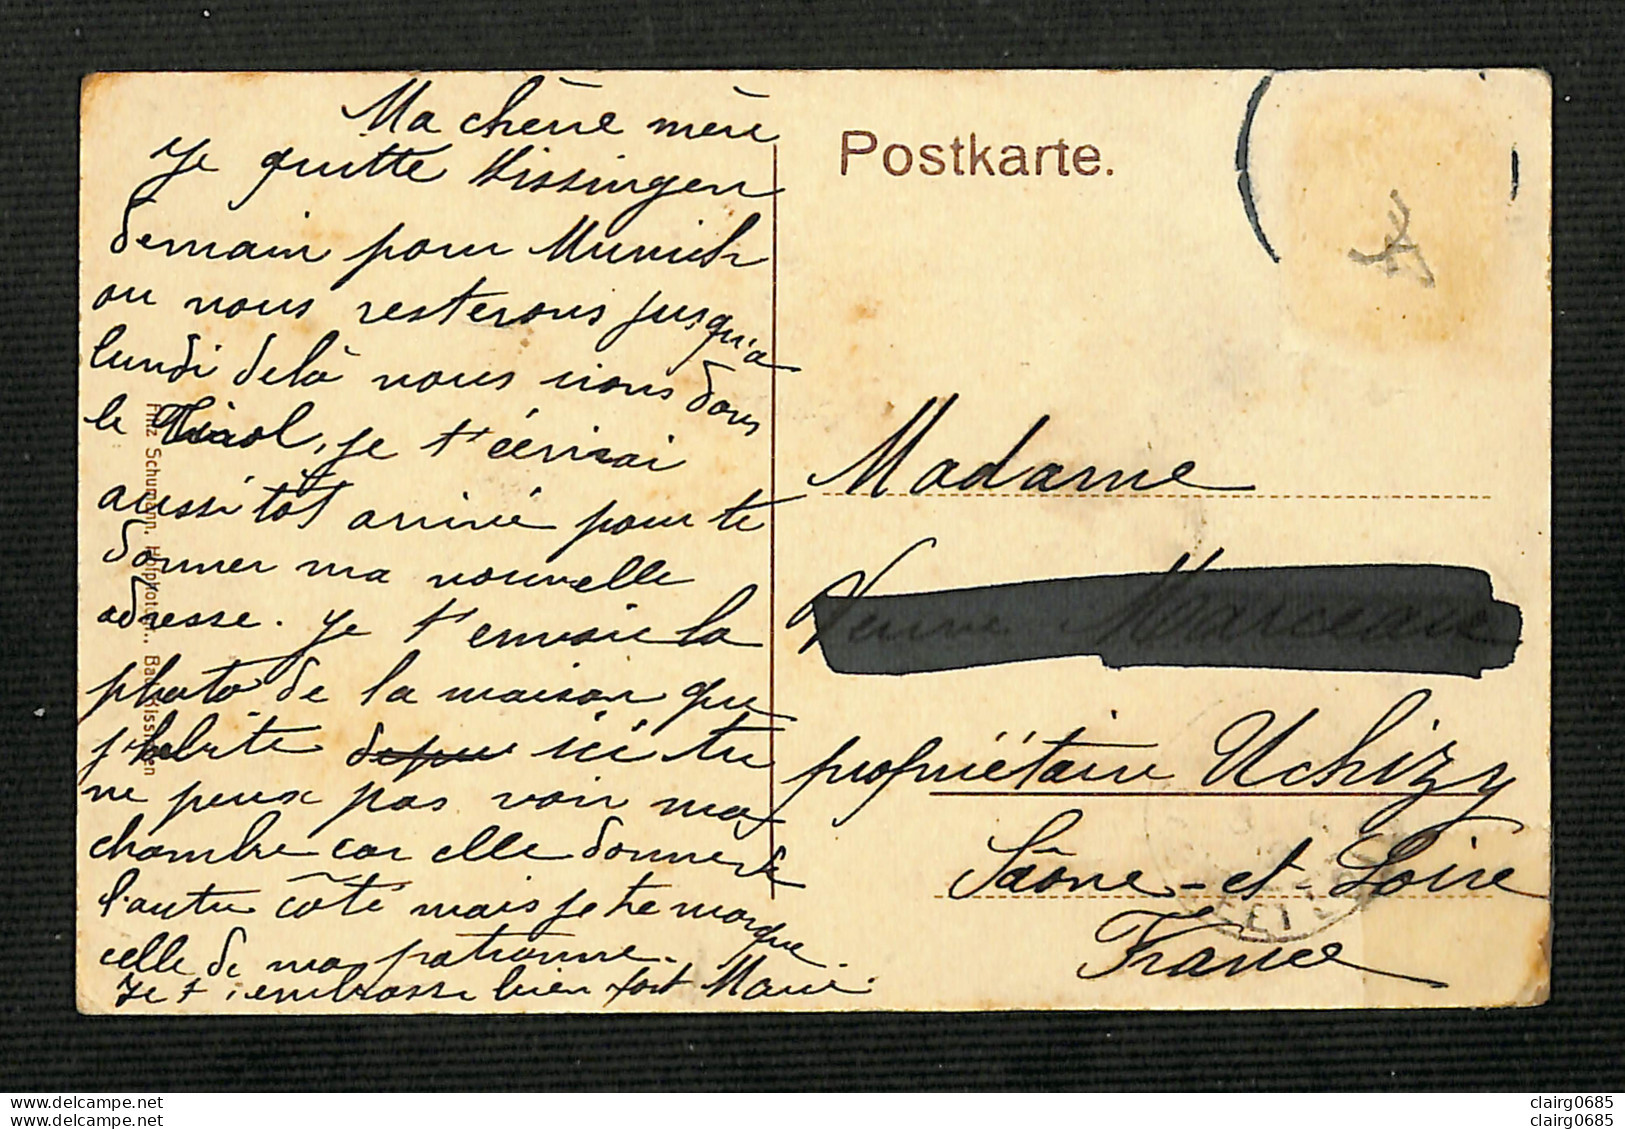 Ma chère mère
je quitte Kissingen
demain pour Munich
ou nous resterons jusqu'a
lundi delà nous irons dans
le Tirol, je t'écrirai
aussitôt arrivé pour te
donner ma nouvelle
adresse. je t'envoie la
photo de la maison que
j'habite ici tu
ne peux pas voir ma
chambre car elle donne de
l'autre côté mais je te marque
celle de ma patronne.
Je t'embrasse bien fort Marie.
Fritz Schumann, Hofphotogr., Bad Kissingen
Postkarte.
Madame
Veuve
propriétaire Uchizy
Saône-et-Loire
France
clairg0685
clairg0685